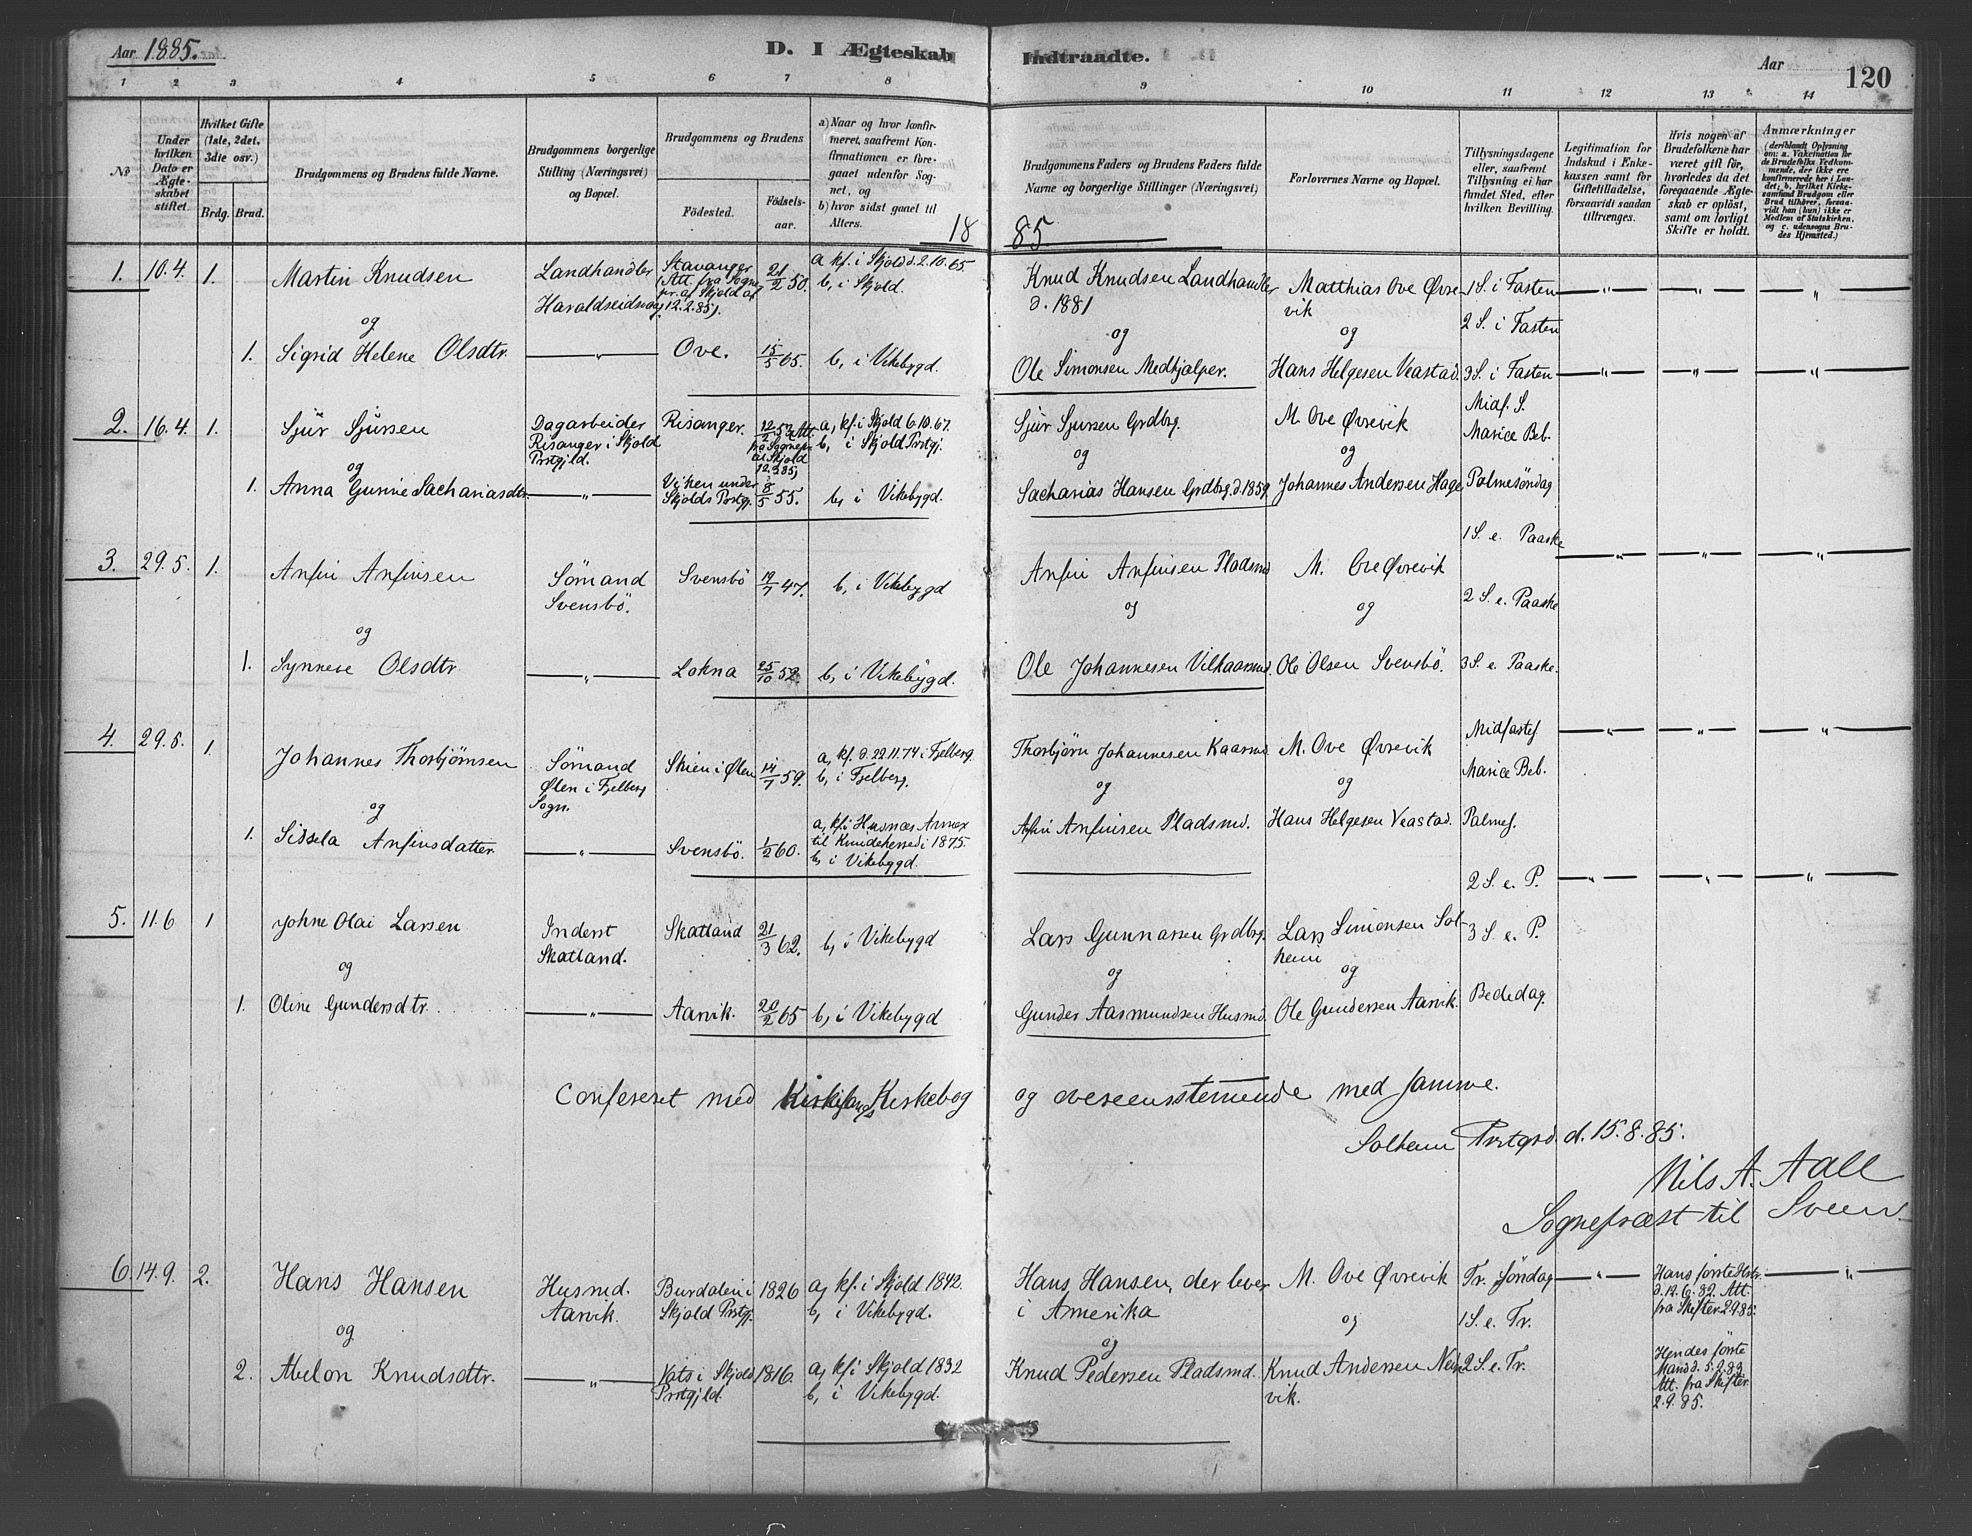 Aar 1885.
D. I Ægteskab Indtraadte.
Aar
120
1 2 3 4 5 6 7 8 9 10 11 12 13 14
No
Under hvilken Dato er Ægteskabet stiftet.
Hvilket Gifte (1ste, 2det, 3die osv.)
Brdg. Brud.
Brudgommens og Brudens fulde Navne.
Brudgommens borgerlige Stilling (Næringsvei) og Bopæl.
Brudgommens og Brudens
Födested.
Födselsaar.
a) Naar og hvor konfirmeret, saafremt Konfirmationen er foregaaet udenfor Sognet, og
b) hvor sidst gaaet til Alters.
Brudgommens Faders og Brudens Faders fulde Navne og borgerlige Stillinger (Næringsvei)
Forlovernes Navne og Bopæl.
Tillysningsdagene eller, saafremt Tillysning ei har fundet Sted, efter hvilken Bevilling.
Legitimation for Indskud i Enkekassen samt for Giftetilladelse, forsaavidt saadan tiltrænges.
Hvis nogen af Brudefolkene har været gift för, hvorledes da det foregaaende Ægteskab er oplöst, samt om lovligt Skifte er holdt.
Anmærkninger (deriblandt Oplysning om: a. Vakcination for de Brudefolks Vedkommende, der ikke ere konfirmerede her i Landet; b, hvilket Kirkesamfund Brudgom eller Brud tilhörer, forsaavidt han (hun) ikke er Medlem af Statskirken, og c. udensogns Brudes Hjemsted.)
18 85
1. 10.4. 1. Martin Knudsen Landhandler Haraldseidsvaag Stavanger (Att. fra Sognepr. af Skjold af 12.2.85). 21/2 50. a kf. i Skjold d. 2.10.65. b, i Skjold. Knud Knudsen Landhandler d. 1881 Matthias Ove Øvrevik 1 S. i Fasten 2 S. i Fasten
og og og
1. Sigrid Helene Olsdtr. — " — Ove. 15/5 65. b, i Vikebygd. Ole Simonsen Medhjælper. Hans Helgesen Veastad. 3 S. i Fasten
2. 16.4. 1. Sjur Sjursen Dagarbeider Risanger i Skjold Prstgjld. Risanger. 12/2 52 (Att. fra Sognepr. til Skjold 12.3.85) a, kf. i Skjold 6.10.67. b, i Skjold Prstgj. Sjur Sjursen Grdbrg. M. Ove Øvrevik Midf. S. Mariæ Beb.
og og og
1. Anna Gurine Sachariasdtr. — " — Viken under Skjolds Prstgj. 8/5 55. b, i Vikebygd. Sacharias Hansen Grdbrg. d. 1859. Johannes Andersen Hage Palmesøndag
3. 29.5. 1. Anfin Anfinsen Sømand Svensbö. Svensbö 19/7 47. b, i Vikebygd Anfin Anfinsen Pladsmd. M. Ove Øvrevik 1 S. e. Paaske 2 S. e. Paaske
og og og
1. Synneve Olsdtr. — " — Lokna 25/10 52. b, i Vikebygd. Ole Johannesen Vilkaarsmd. Ole Olsen Svensbö. 3 S. e. Paaske.
4. 29.5. 1. Johannes Thorbjörnsen Sømand Ølen i Fjelberg Sogn. Skien i Ølen 14/7 59. a, kf. d. 22.11.74 i Fjelberg. b, i Fjelberg. Thorbjörn Johannesen Kaarmd. M. Ove Øvrevik Midfastes. Mariæ Beb.
og og og
1. Sissela Anfinsdatter — " — Svensbö. 1/2 60. a, kf. i Husnæs Annex til Kvindeherred i 1875. b, i Vikebygd. Anfin Anfinsen Pladsmd. Hans Helgesen Veastad. Palmes.
5. 11.6 1 Johne Olai Larsen Inderst Skatland. Skatland 21/3 62. b, i Vikebygd Lars Gunnarsen Grdbrg. Lars Simonsen Solheim 2 S. e. P. 3 S. e. P.
og og og
1. Oline Gundersdtr. — " — Aarvik. 20/2 65 b, i Vikebygd Gunder Aasmundsen Husmd. Ole Gundersen Aarvik. Bededag.
Confereret med Kirkesangers Kirkebog og overensstemmende med samme.
Solheim Prstgrd d. 15.8.85.
Nils A. Aall
Sognepræst til
6. 14.9. 2. Hans Hansen Husmd. Aarvik. Burdalen i Skjold Prstgj. 1826 a, kf. i Skjold 1842. b, i Vikebygd. Hans Hansen, der lever i Amerika M. Ove Øvrevik Tr. Søndag 1 S. e. Tr. — " — Hans første Hstr. d. 12.6.82. Att. fra Skifter. 2.9.85.
og og og
2. Abelon Knudsdtr. — " — Vats i Skjold Prstgjld. 1816. a, kf. i Skjold 1832 b, i Vikebygd. Knud Pedersen Pladsmd. Knud Andersen vik. 2 S. e. Tr. Hendes første Mand d. 5.2.82 Att. fra Skifter. 2.9.85.